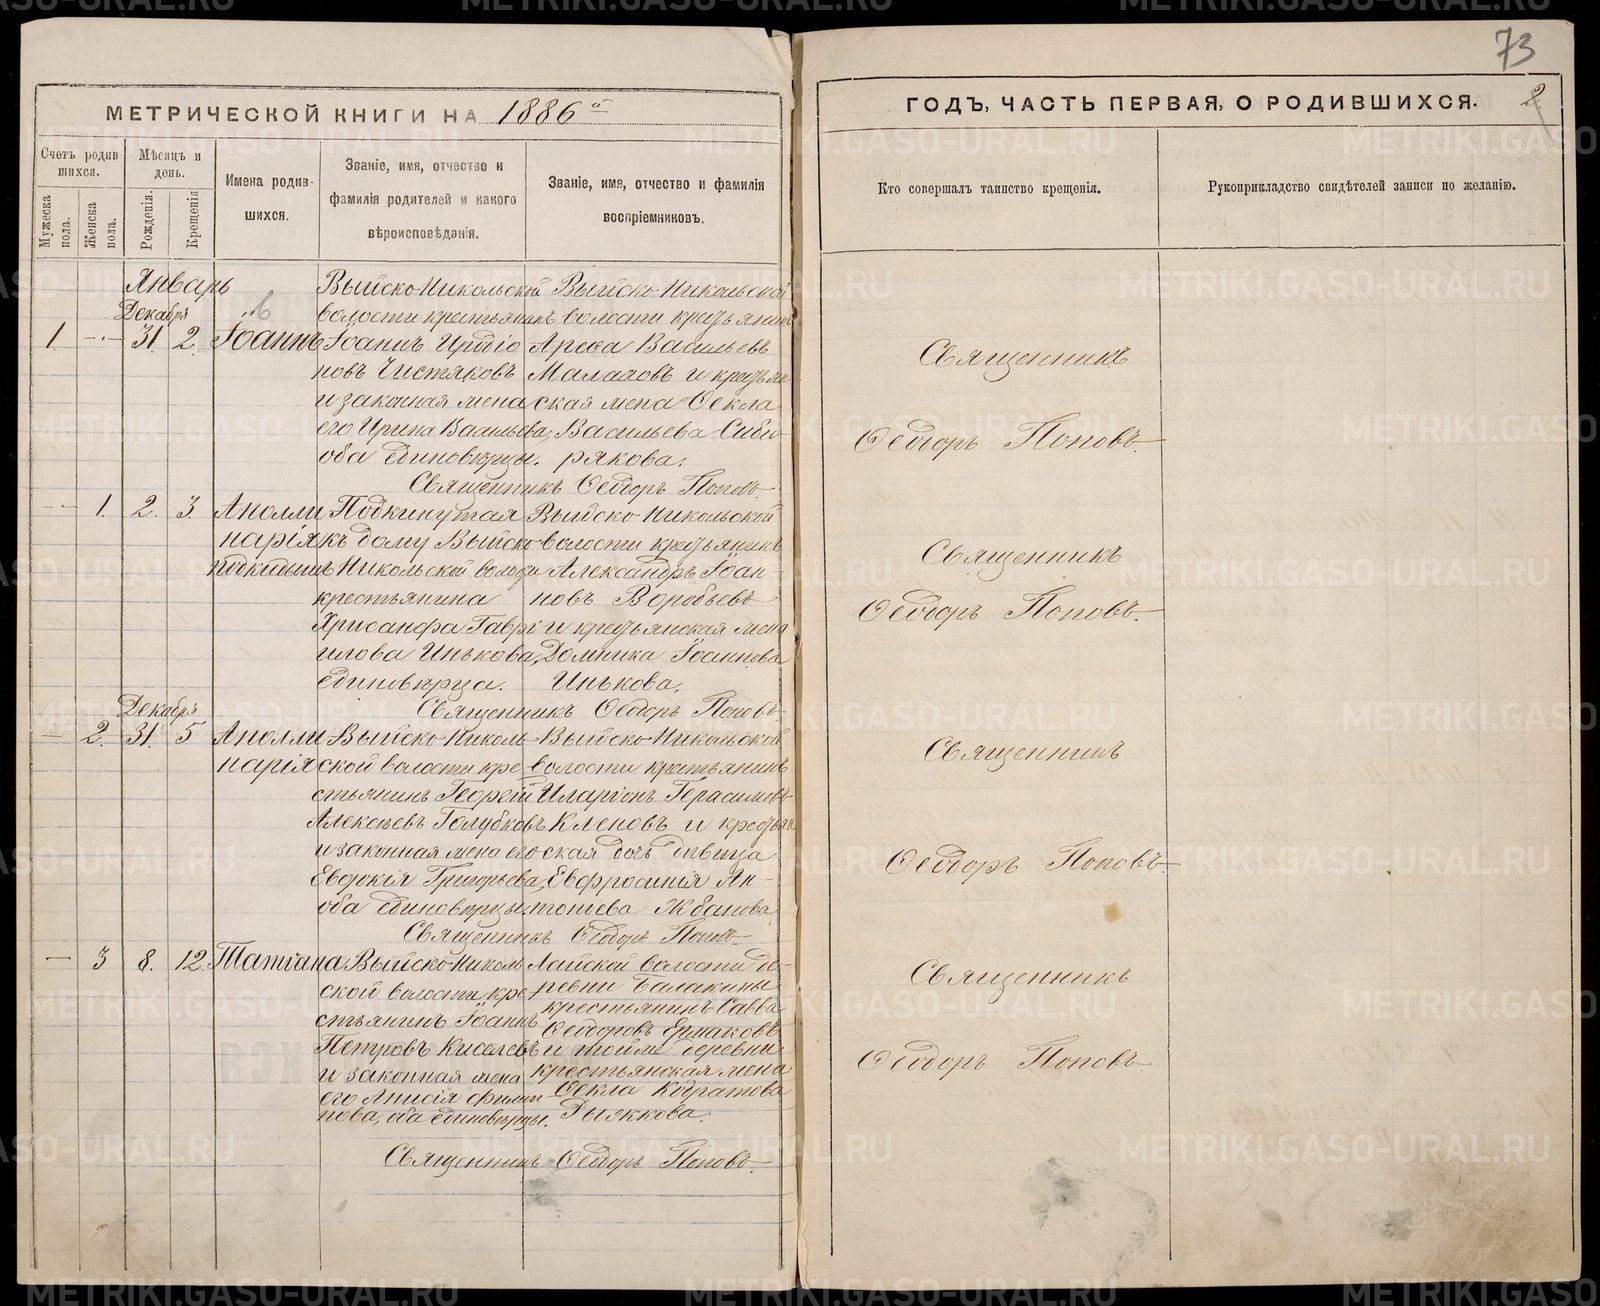 73
МЕТРИЧЕСКОЙ КНИГИ НА 1886 й
ГОДЪ, ЧАСТЬ ПЕРВАЯ, О РОДИВШИХСЯ. 2
Счетъ родив
шихся.
Мужеска пола.
Женска пола.
Мѣсяцъ и
день.
Рожденія.
Крещенія
Имена родив-
шихся.
Званіе, имя, отчество и
фамилія родителей и какого
вѣроисповѣданія.
Званіе, имя, отчество и фамилія
воспріемниковъ.
Кто совершалъ таинство крещенія.
Рукоприкладство свидѣтелей записи по желанію.
Январь
Декабря
1 31. 2. Іоаннъ
Выйско-Никольской
волости крестьянинъ
Іоаннъ
новъ Чистяковъ
и законная жена
его Ирина Васильева,
оба единовѣрцы.
Выйско-Никольской
волости
Васильевъ
Малаховъ и
ская жена Ѳекла
Васильева Сиби-
рякова.
Священникъ Ѳеодоръ Поповъ.
Священникъ
Ѳеодоръ Поповъ.
1. 2. 3. Аполли
нарія
Подкинутая
къ дому Выйско-
Никольской
крестьянина
Хрисанфа Гаврі
илова Инькова,
единовѣрца.
Выйско-Никольской
волости
Александръ Іоан-
новъ Воробьевъ
и жена
Домника Іоаннова
Инькова.
Священникъ Ѳеодоръ Поповъ.
Священникъ
Ѳеодоръ Поповъ.
Декабря
2. 31. 5 Аполли
нарія
Выйско-Николь
ской волости кре
стьянинъ Георгій
Алексѣевъ Голубковъ
и законная жена его
Евдокія Григорьева,
оба единовѣрцы.
Выйско-Никольской
волости крестьянинъ
Иларіонъ Герасимовъ
Клеповъ и
ская дочь дѣвица
Евфросинія Ан-
тоніева Жбанова
Священникъ Ѳеодоръ Поповъ.
Священникъ
Ѳеодоръ Поповъ.
3 8. 12. Татіана
Выйско-Николь
ской волости кре
стьянинъ Іоаннъ
Петровъ Киселевъ
и законная жена
его Анисія Филип
пова, оба единовѣрцы.
Лайской волости де-
ревни Балакины
крестьянинъ Савва
Ѳеодоровъ Ермаковъ
и тойже деревни
крестьянская жена
Ѳекла
Священникъ Ѳеодоръ Поповъ.
Священникъ
Ѳеодоръ Поповъ.
METRIKI.GASO-URAL.RU